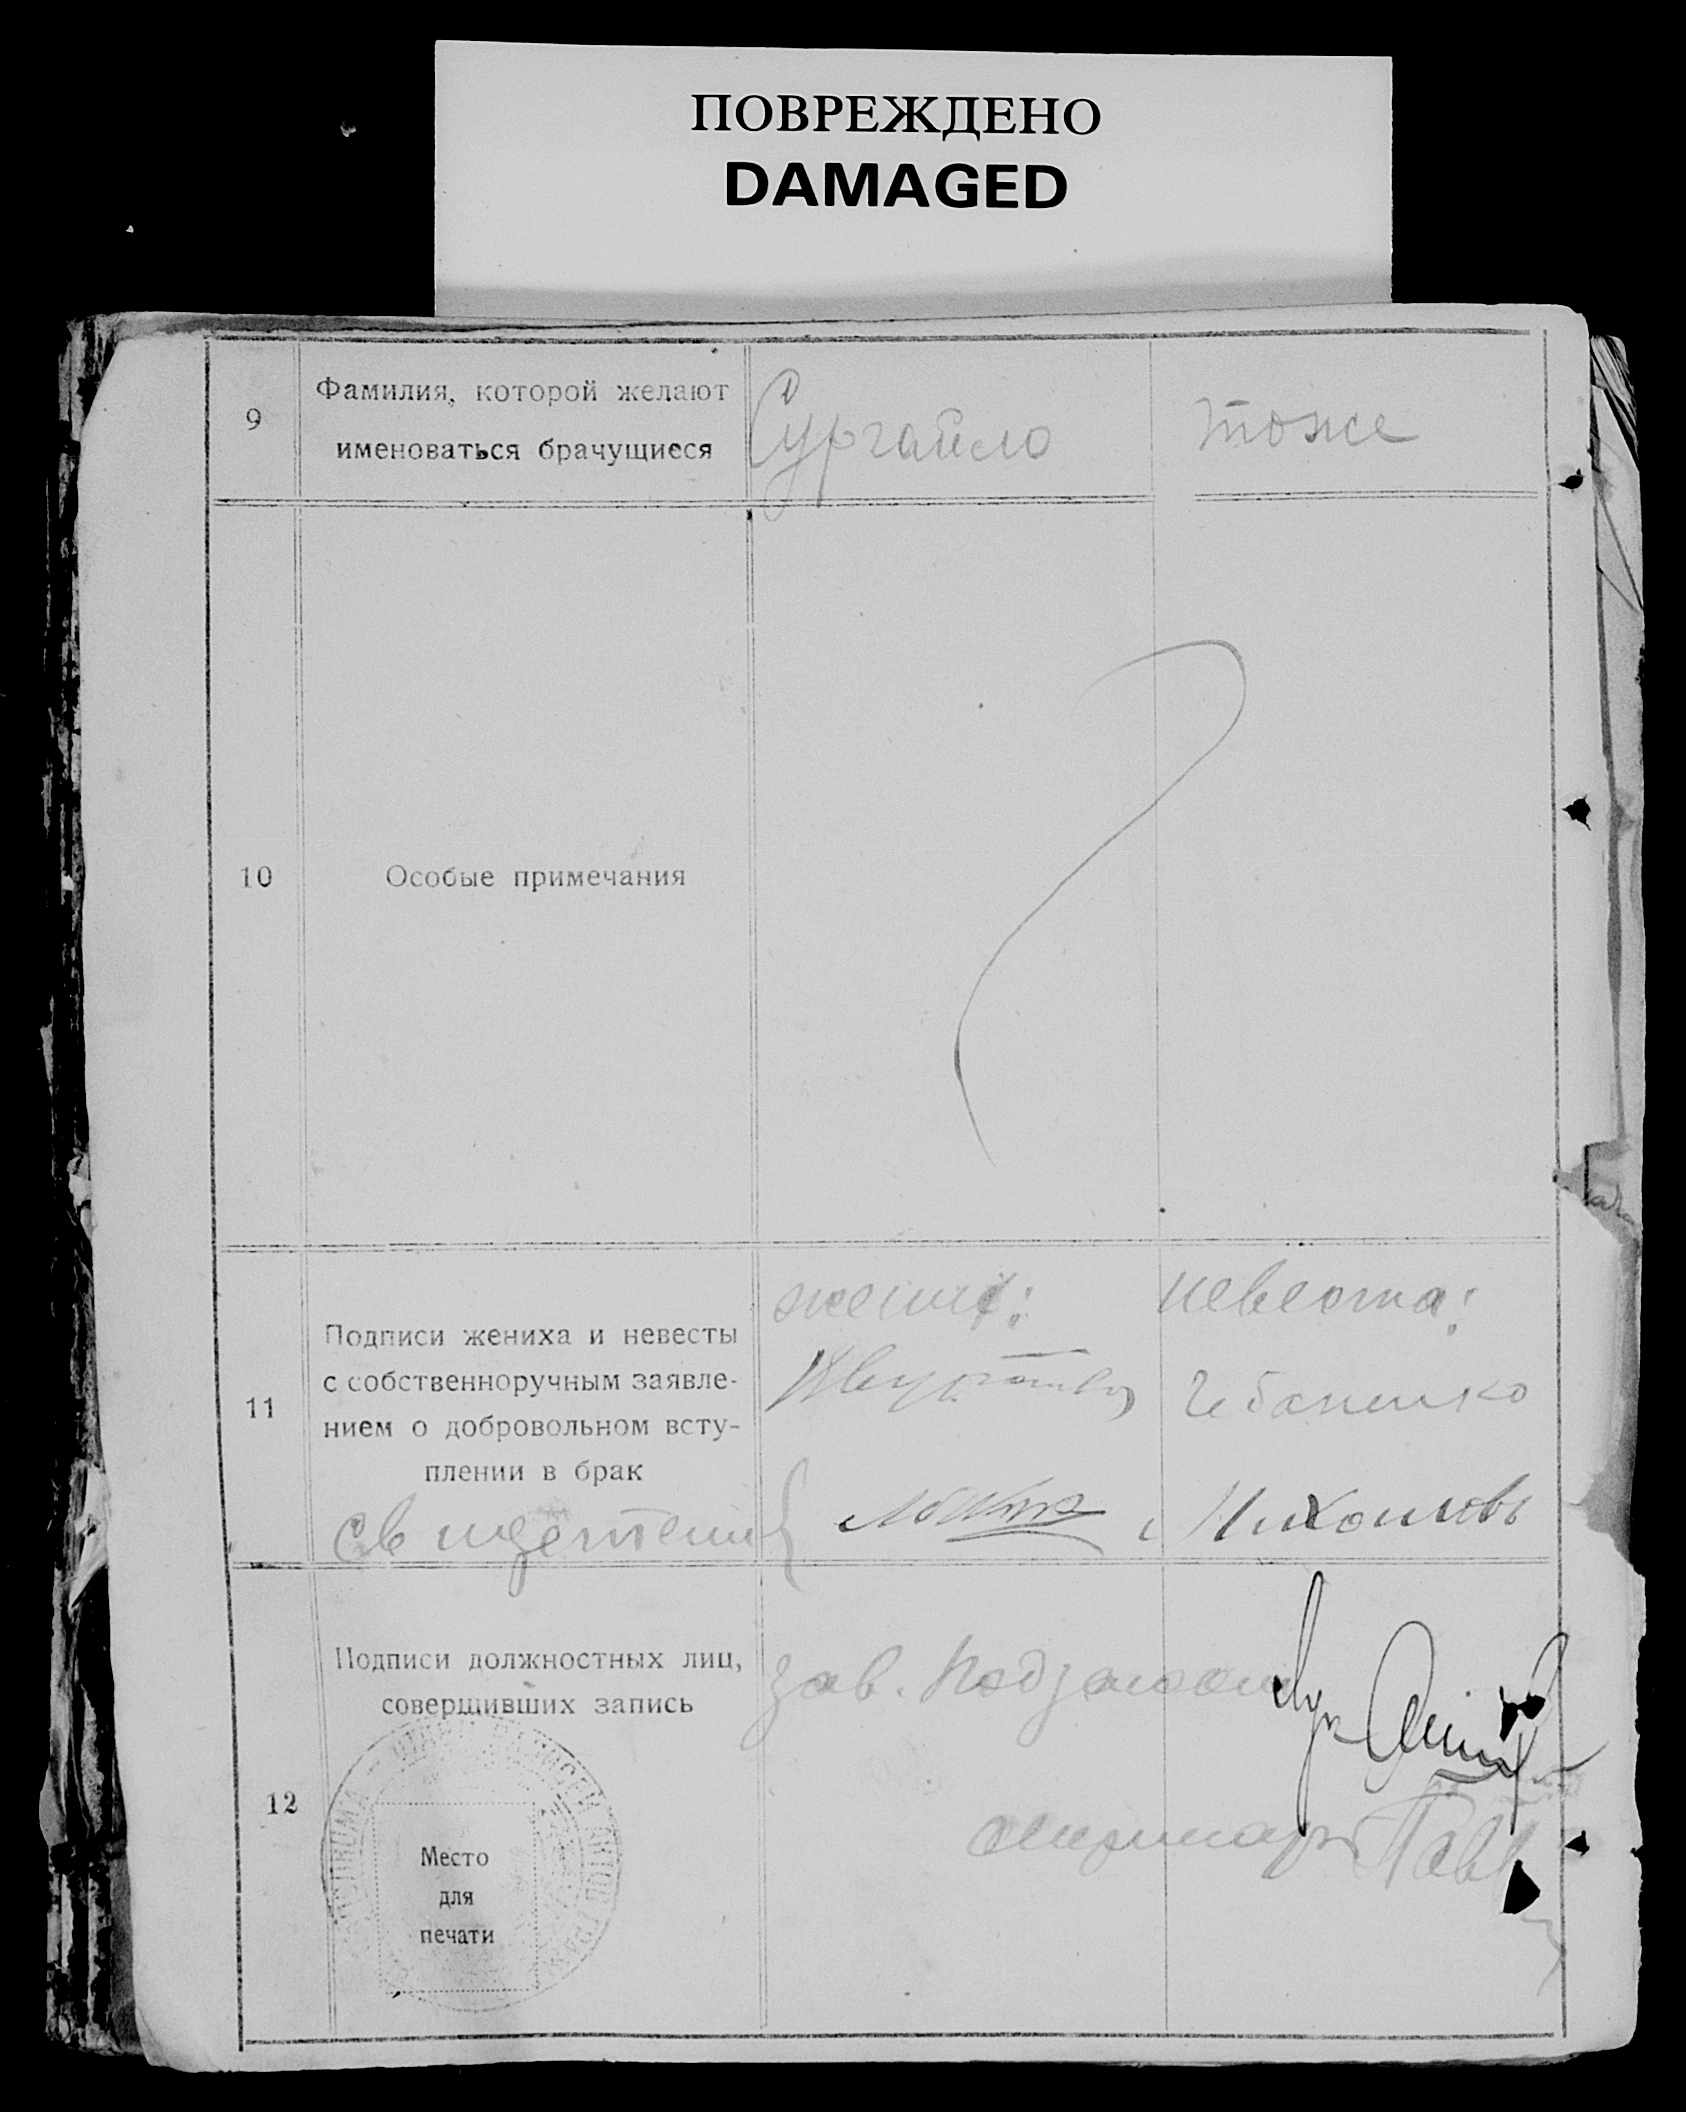 ПОВРЕЖДЕНО
DAMAGED
9
Фамилия, которой желают
именоваться брачущиеся
Сургайло
тоже
10
Особые примечания
11
Подписи жениха и невесты
с собственноручным заявле-
нием о добровольном всту-
плении в брак
жених:
невеста:
Чебаненко
Свидетели
12
Подписи должностных лиц,
совершивших запись
зав. Подзагсом
секретарь
Место
для
печати